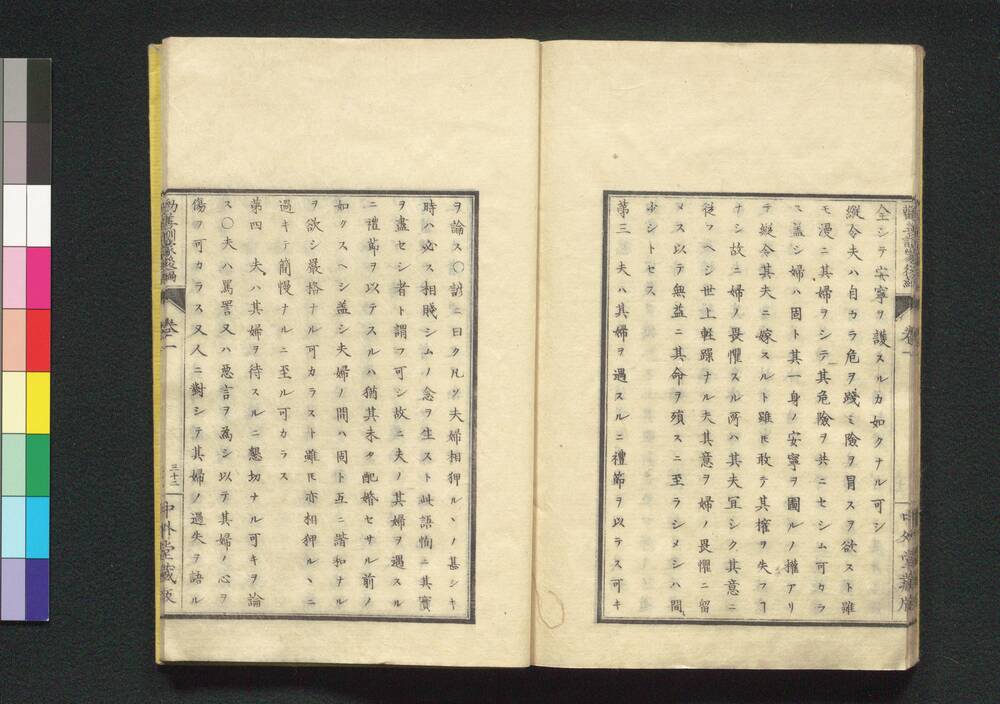 全シテ安寧ヲ護スルカ如クナル可シ
縱令夫ハ自カラ危ヲ踐ミ險ヲ冒スヲ欲スト雖
モ漫ニ其婦ヲシテ其危險ヲ共ニセシム可カラ
ス蓋シ婦ハ固ト其一身ノ安寧ヲ圖ルノ權アリ
テ縱令其夫ニ嫁スルト雖𪜈敢テ其權ヲ失フヿ
ナシ故ニ婦ノ畏懼スル所ハ其夫宜シク其意ニ
從フヘシ世上輕躁ナル夫其意ヲ婦ノ畏懼ニ留
メス以テ無益ニ其命ヲ殞スニ至ラシメシハ間
少シトセス
第三 夫ハ其婦ヲ遇スルニ禮節ヲ以ラス可キ
ヲ論ス〇諺ニ曰ク凡ソ夫婦相狎ルヽノ甚シキ
時ハ必ス相賤シムノ念ヲ生スト此語恂ニ其實
ヲ盡セシ者ト謂フ可シ故ニ夫ノ其婦ヲ遇スル
ニ禮節ヲ以テスルハ猶其未タ配婚セサル前ノ
如クスヘシ蓋シ夫婦ノ間ハ固ト互ニ諧和ナル
ヲ欲シ嚴格ナル可カラスト雖𪜈亦相狎ルヽニ
過キテ簡慢ナルニ至ル可カラス
第四 夫ハ其婦ヲ待スルニ懇切ナル可キヲ論
ス〇夫ハ罵詈又ハ惡言ヲ爲シ以テ其婦ノ心ヲ
傷フ可カラス又人ニ對シテ其婦ノ過失ヲ語ル
卷一
三十二
中外堂藏版